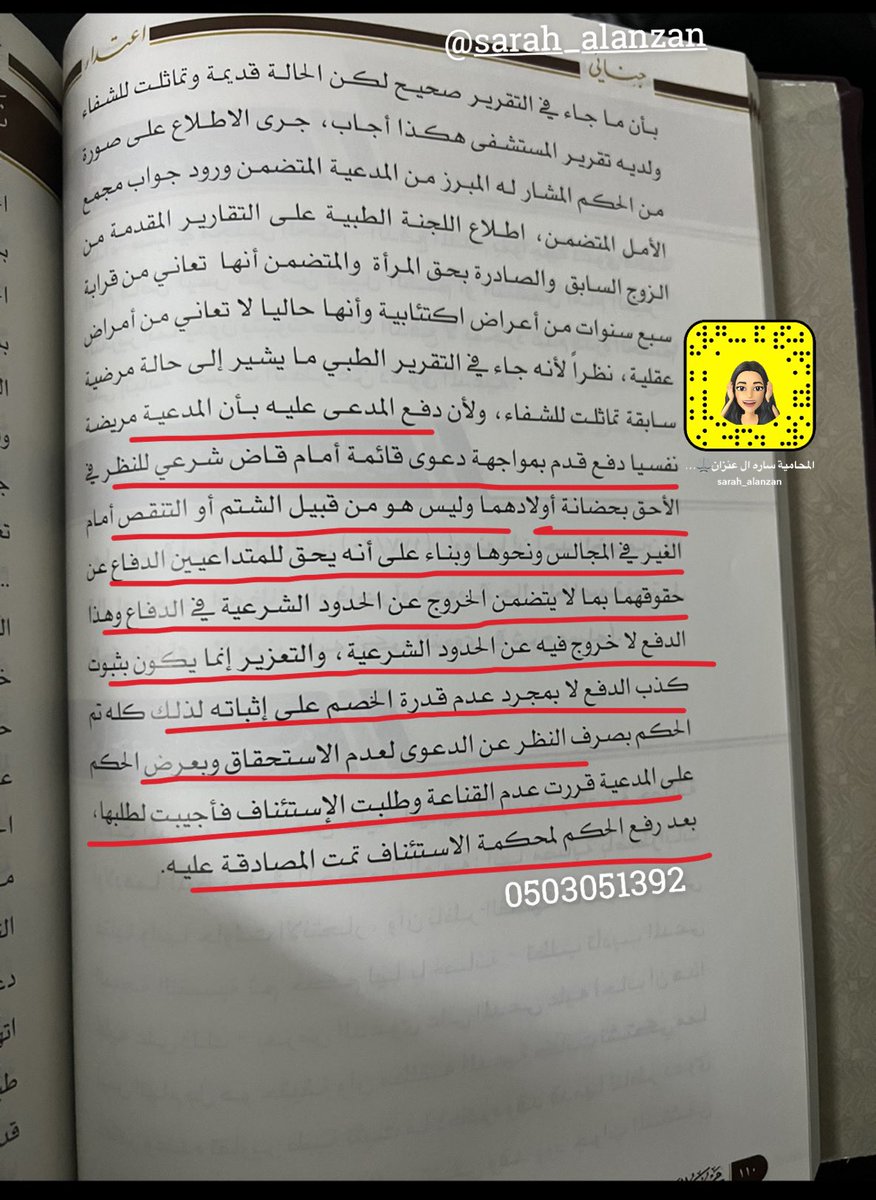 @sarah_alanzan
جنائي
اعتداء
بأن ما جاء في التقرير صحيح لكن الحالة قديمة وتماثلت للشفاء
ولديه تقرير المستشفى هكذا أجاب، جرى الاطلاع على صورة
من الحكم المشار له المبرز من المدعية المتضمن ورود جواب مجمع
الأمل المتضمن، اطلاع اللجنة الطبية على التقارير المقدمة من
الزوج السابق والصادرة بحق المرأة والمتضمن أنها تعاني من قرابة
سبع سنوات من أعراض اكتئابية وأنها حاليا لا تعاني من أمراض
عقلية، نظراً لأنه جاء في التقرير الطبي ما يشير إلى حالة مرضية
سابقة تماثلت للشفاء، ولأن دفع المدعى عليه بأن المدعية مريضة
نفسيا دفع قدم بمواجهة دعوى قائمة أمام قاض شرعي للنظر في
الأحق بحضانة أولادهما وليس هو من قبيل الشتم أو التنقص أمام
الغير في المجالس ونحوها وبناء على أنه يحق للمتداعيين الدفاع عن
حقوقهما بما لا يتضمن الخروج عن الحدود الشرعية في الدفاع وهذا
الدفع لا خروج فيه عن الحدود الشرعية، والتعزير إنما يكون بثبوت
كذب الدفع لا بمجرد عدم قدرة الخصم على إثباته لذلك كله تم
الحكم بصرف النظر عن الدعوى لعدم الاستحقاق وبعرض الحكم
على المدعية قررت عدم القناعة وطلبت الإستئناف فأجيبت لطلبها،
بعد رفع الحكم لمحكمة الاستئناف تمت المصادقة عليه.
المحامية ساره ال عنزان
sarah_alanzan
0503051392
١١٠